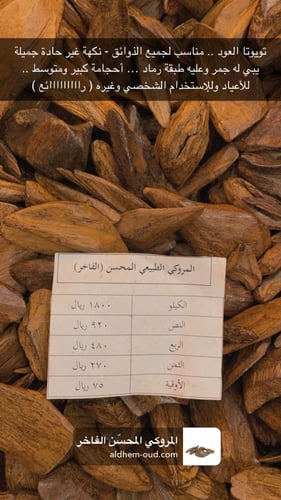 تويوتا العود .. مناسب لجميع الذوائق - نكهة غير حادة جميلة
يبي له جمر وعليه طبقة رماد ... أحجامة كبير ومتوسط ..
للأعياد وللإستخدام الشخصي وغيره ( راااااااااائع )
المروكي الطبيعي المحسن (الفاخر)
الكيلو ١٨٠٠ ريال
النص ٩٢٠ ريال
الربع ٤٨٠ ريال
الثمن ٢٧٠ ريال
الأوقية ٧٥ ريال
المروكي المحسّن الفاخر
aldhem-oud.com